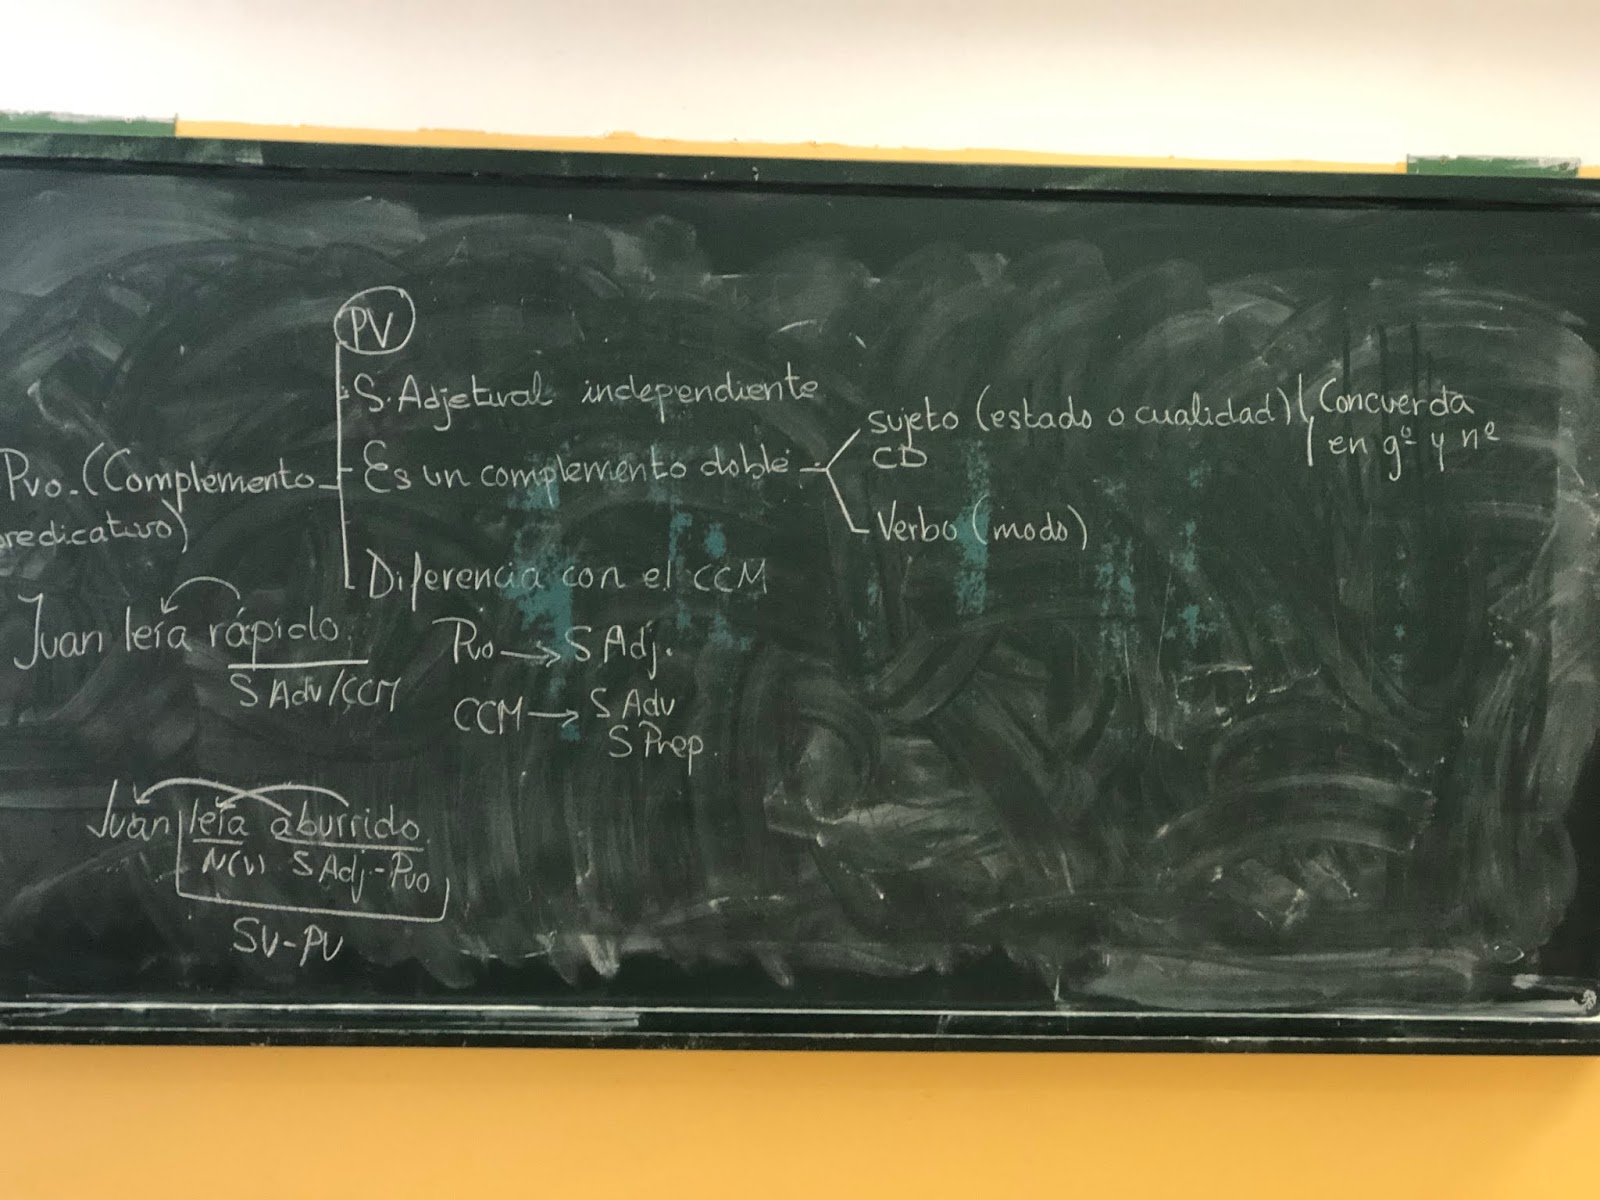 PV
S. Adjetival independiente
Pvo. (Complemento
predicativo)
Es un complemento doble
sujeto (estado o cualidad)
CD
Concuerda
en gº y nº
Verbo (modo)
Diferencia con el CCM
Juan leía rápido.
S Adv/CCM
Pvo → S Adj.
CCM → S Adv
S Prep.
Juan leía aburrido.
N(v) S Adj-Pvo
SV-PV